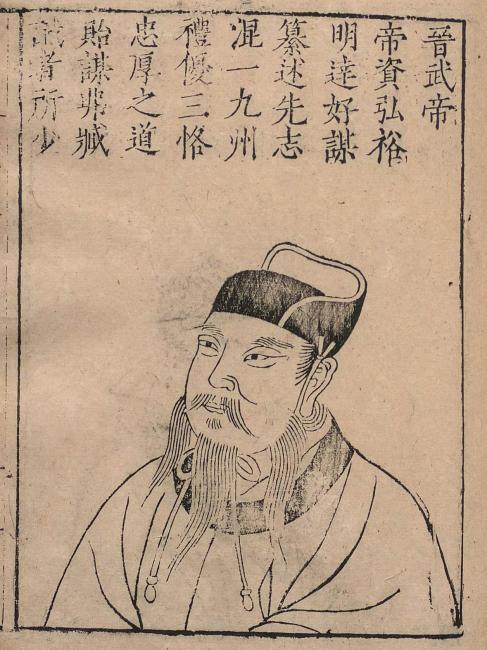 晉武帝
帝資弘裕
明達好謀
纂述先志
混一九州
禮優三恪
忠厚之道
貽謀弗臧
識者所少